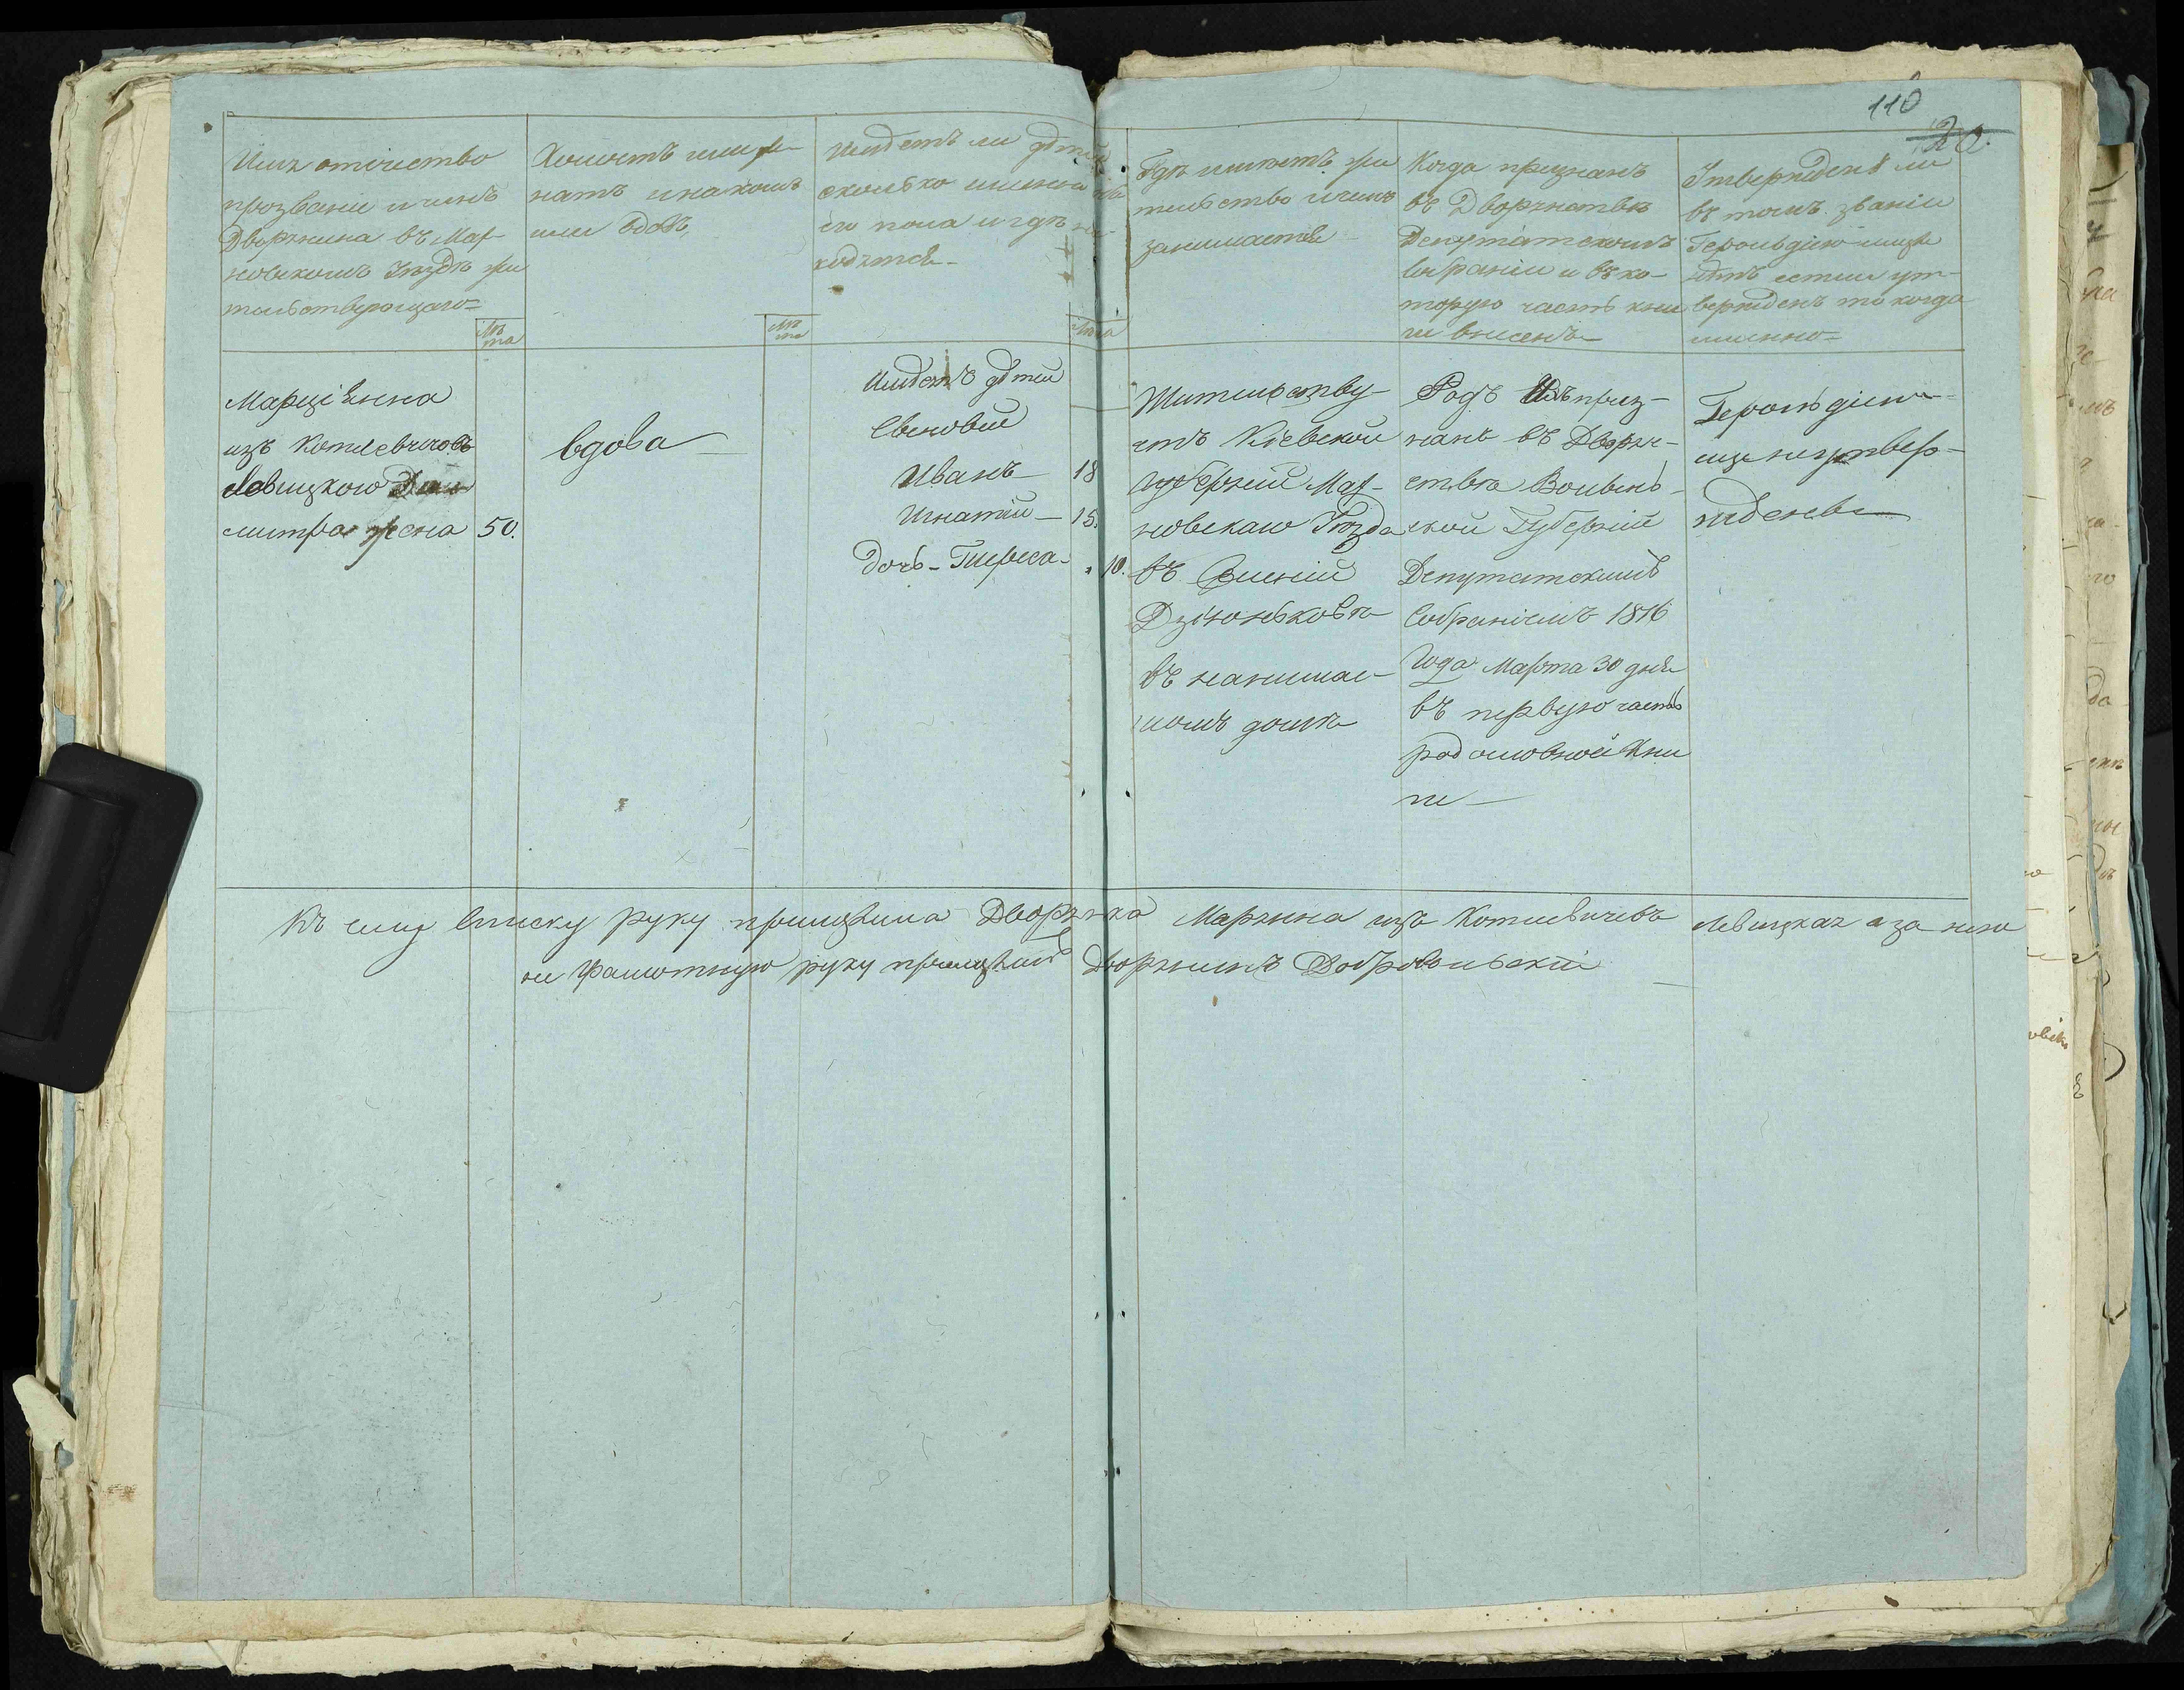 110
20.
Имя отчество
прозвание и чинъ
Дворянина въ Мах-
новскомъ Уѣздѣ жи
тельствующаго
Лѣ
та
Холостъ или же-
натъ и на комъ
или вдовъ,
Лѣ
та
Имѣетъ ли дѣтей
сколько имянно
его пола и гдѣ на
ходятся
Лѣта
Гдѣ имѣетъ жи
тельство и чемъ
занимается
Когда признанъ
въ Дворянствѣ
Депутатскомъ
Собраніи и въ ко-
торую часть кни
ги внесенъ
Утвержденъ ли
въ томъ званіи
Герольдіею или
нѣтъ если ут-
вержденъ то когда
имянно
Марціянна
изъ Котлевичовъ
Левицкого
митра жена 50.
вдова
Имѣетъ дѣтей
Сыновей
Иванъ 18
Игнатій 15.
дочь Тиреса 10.
Жительству-
етъ Кіевской
Губерніи Мах-
новскаго Уѣзда
въ Селеніи
Дзюньковѣ
въ нанимае-
момъ домѣ
Родъ Ихъ приз-
нанъ въ Дворян-
ствѣ Волынь-
ской Губерніи
Депутатскимъ
Собраніемъ 1816
Года Марта 30 дня
въ первую часть
родословной Кни
ги
Герольдіею
еще неутвер-
жденъ
Къ сему списку руку приложила Дворянка Марянна изъ Котлевичевъ Левицкая а за нею
не грамотную руку приложилъ Дворянинъ Добровольскій